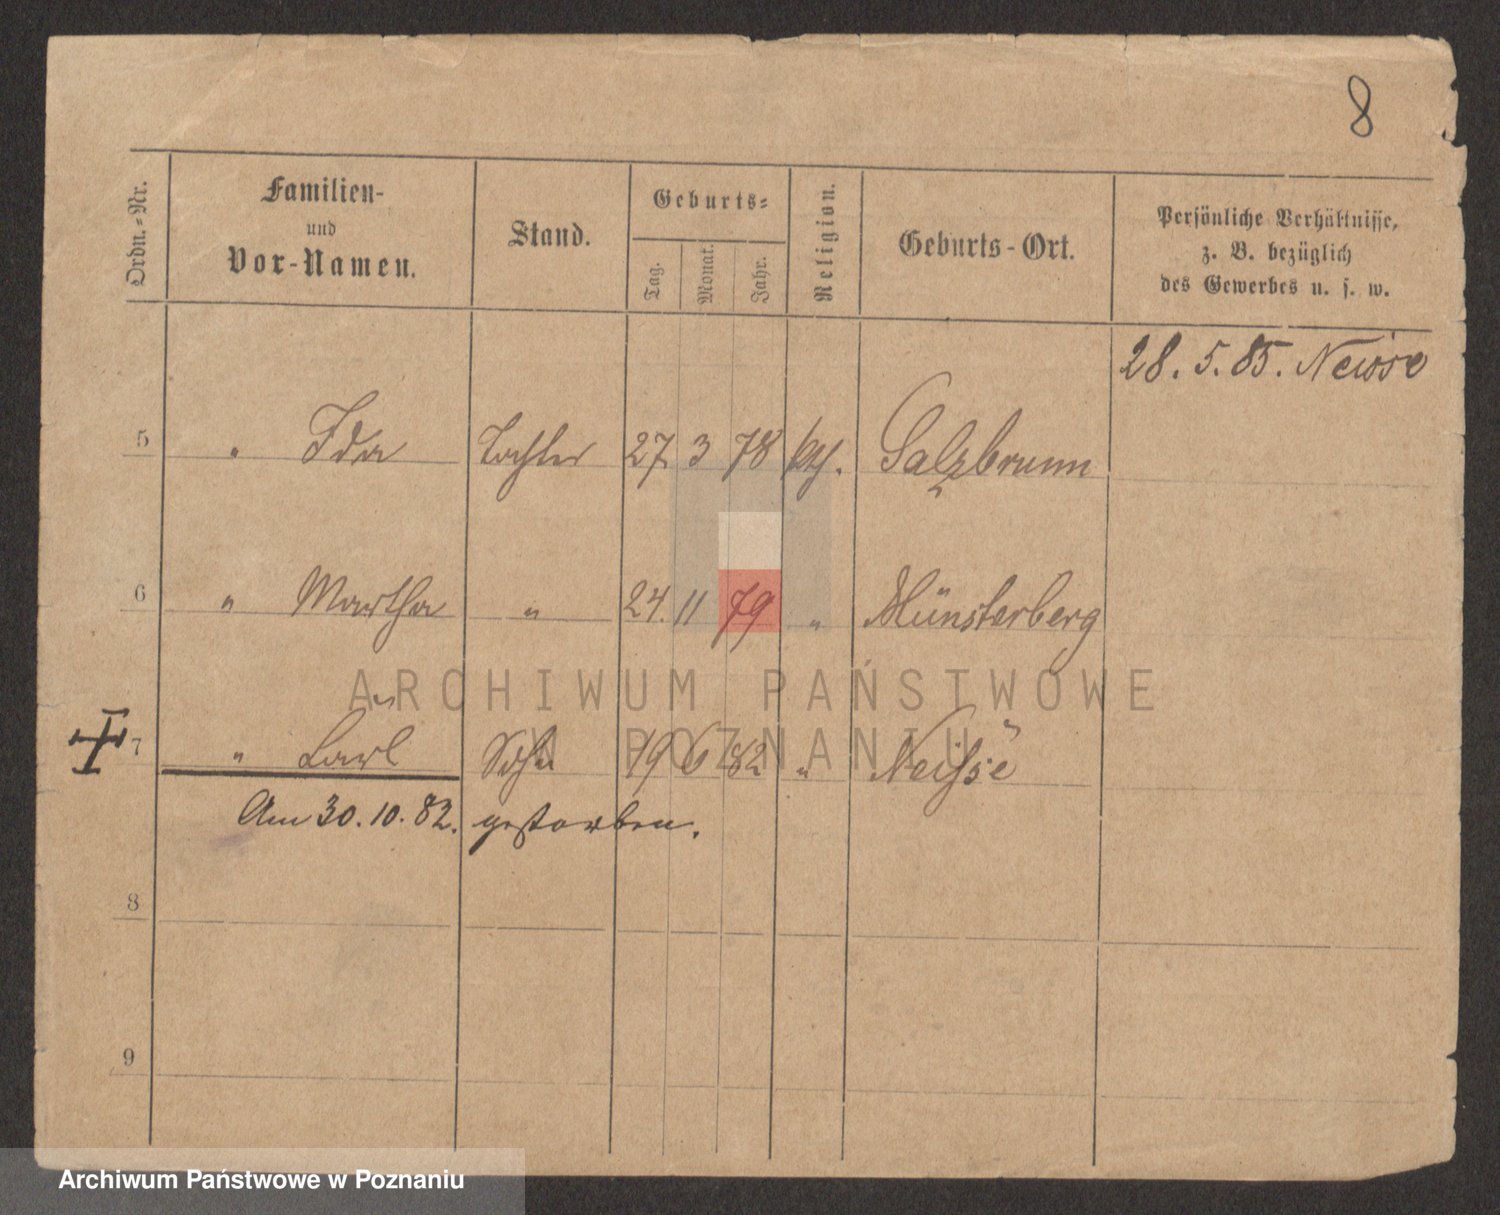 8
Ordn.-Nr.
Familien-
und
Vor-Namen.
Stand.
Geburts-
Tag.
Monat.
Jahr.
Religion.
Geburts-Ort.
Persönliche Verhältnisse,
z. B. bezüglich
des Gewerbes u. s. w.
28. 5. 85. Neisse
5 " Ida Tochter 27 3 78 kth. Salzbrunn
6 " Martha " 24. 11 79 " Münsterberg
ARCHIWUM PAŃSTWOWE
W POZNANIU
7 " Karl Sohn 19 6 82 " Neisse
Am 30. 10. 82. gestorben.
8
9
Archiwum Państwowe w Poznaniu